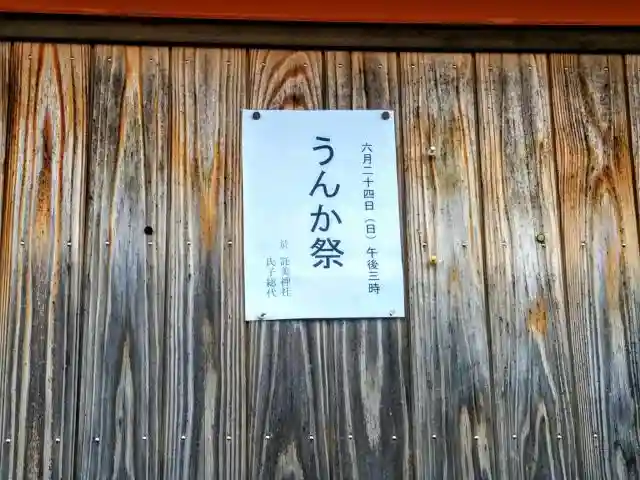 六月二十四日（日）午後三時
うんか祭
於 託美神社
氏子総代